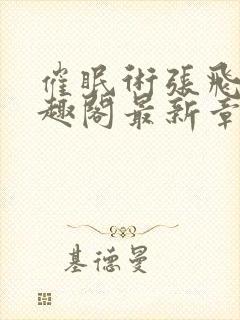 催眠術張飛
趣閣最新章
基德曼